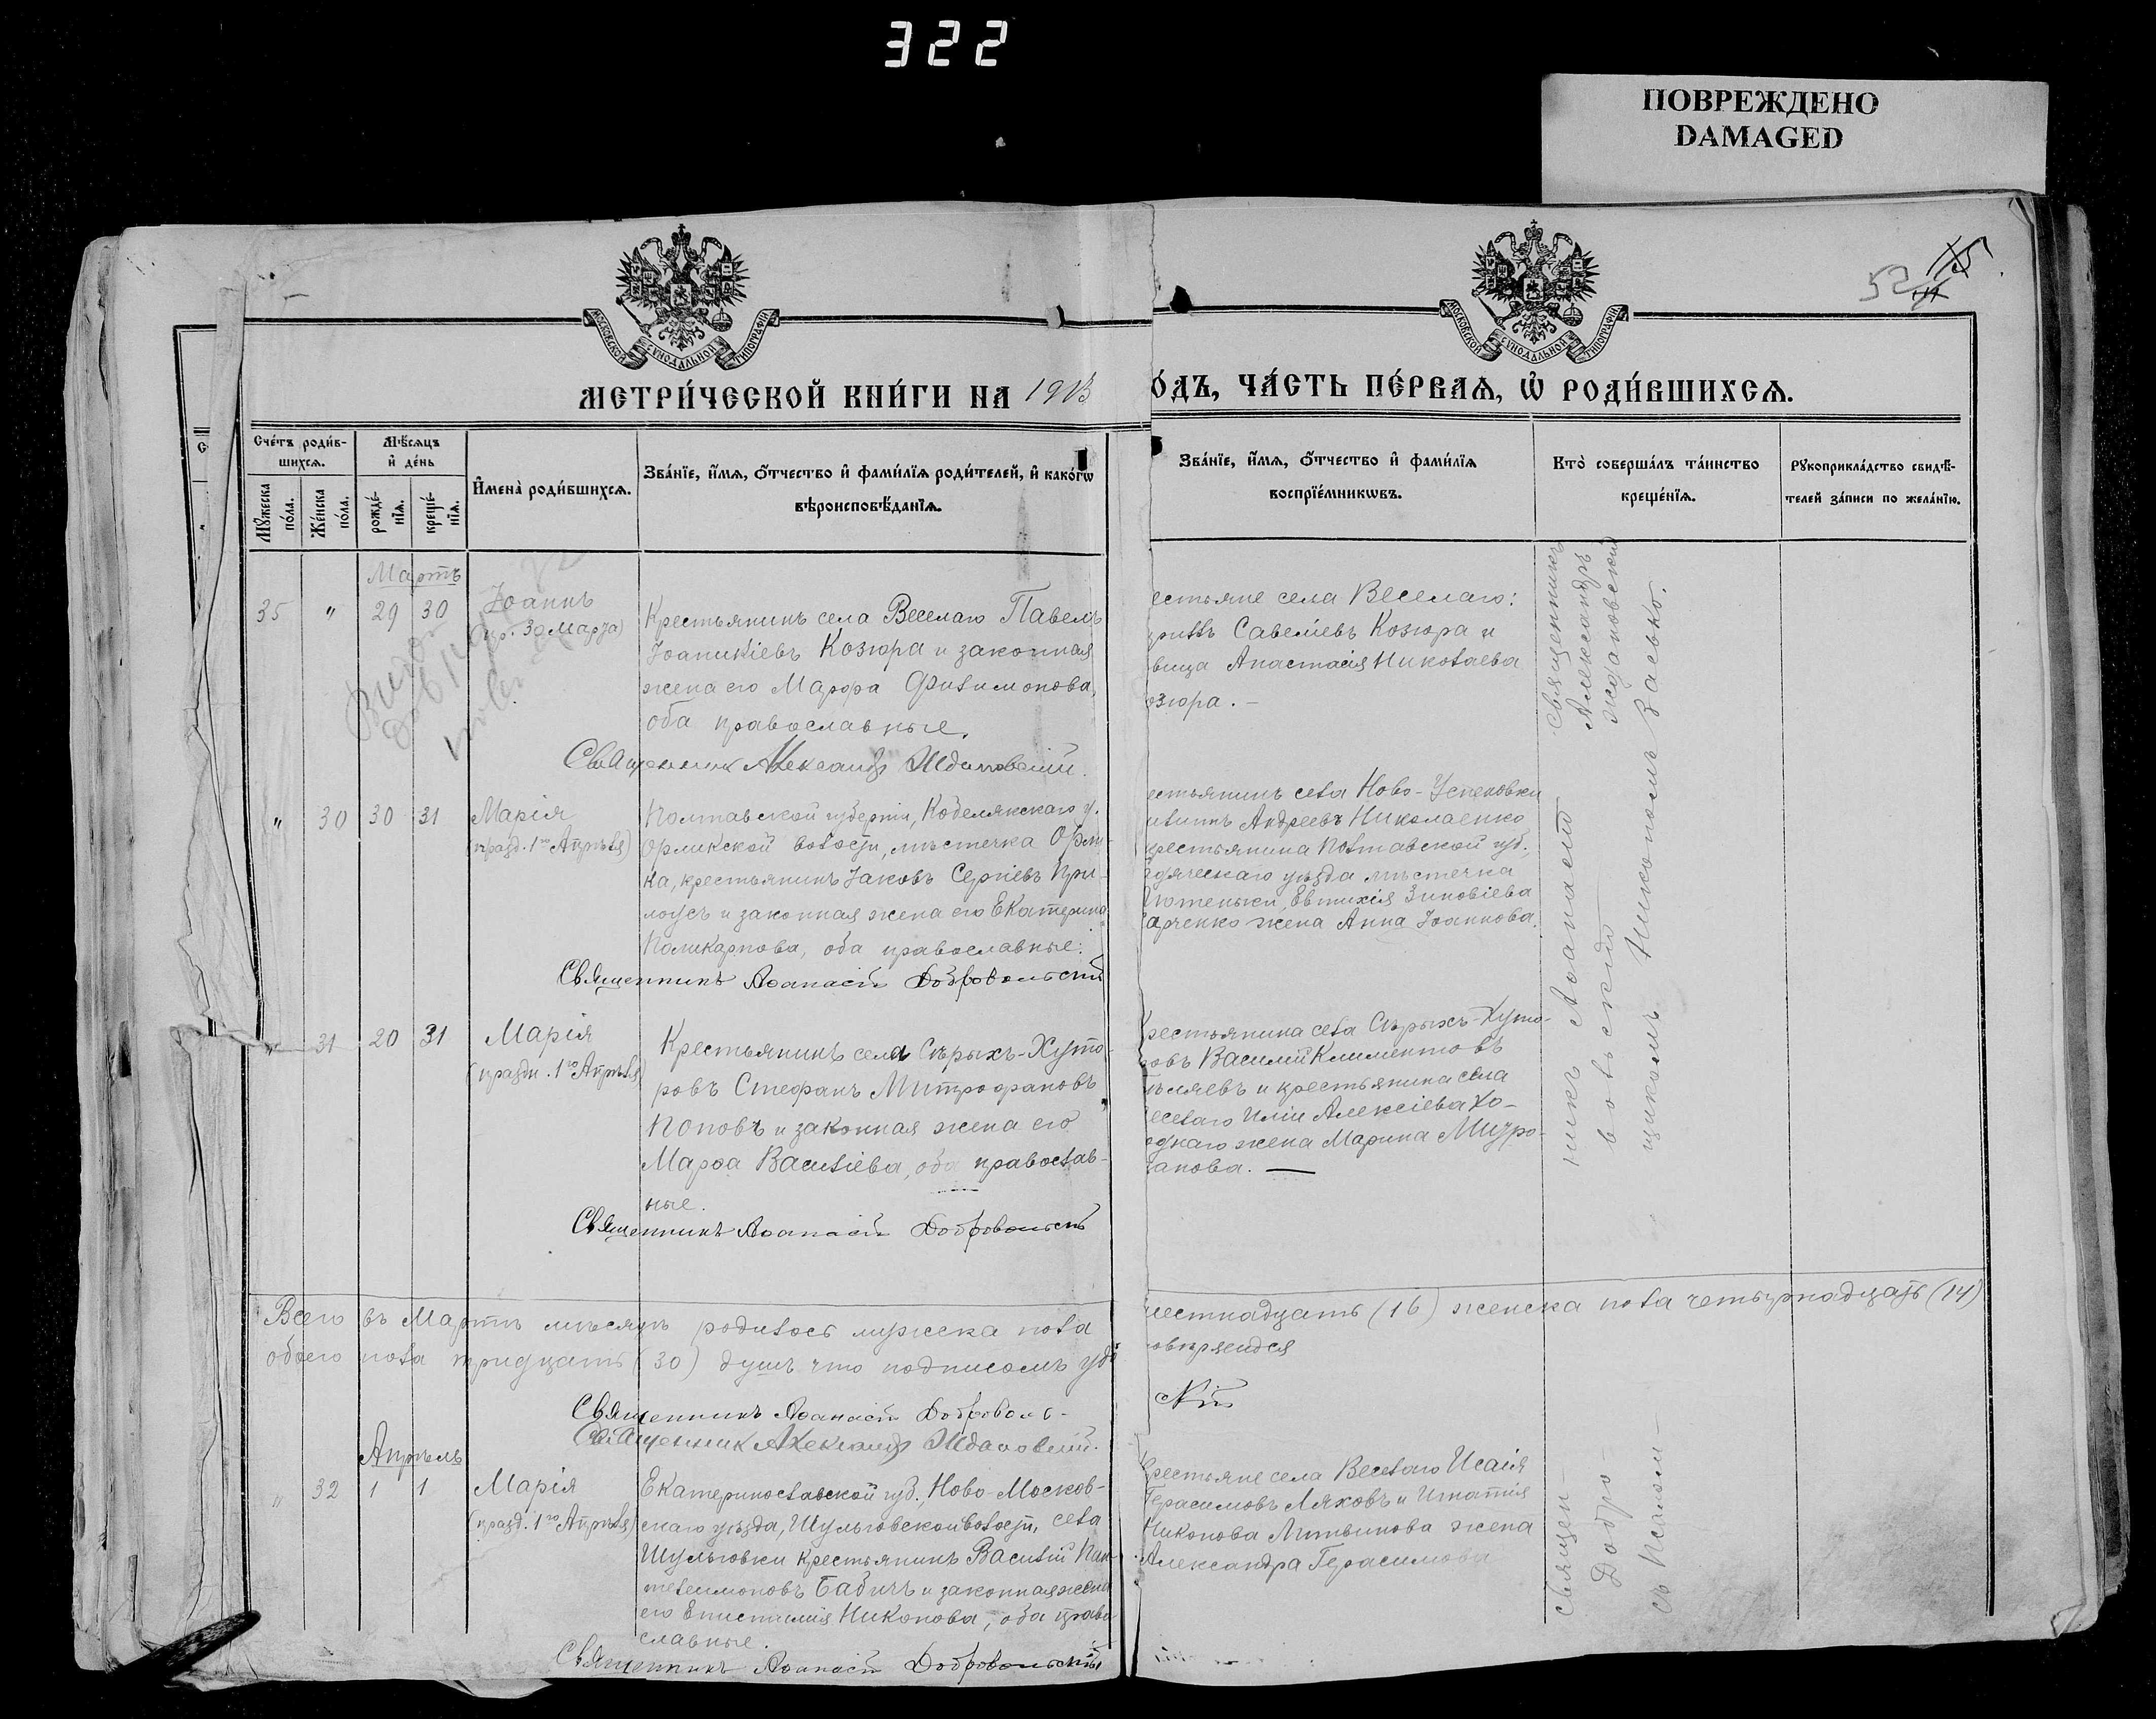 322
ПОВРЕЖДЕНО
DAMAGED
52
МОСКОВСКОЙ СѴНОДАЛЬНОЙ ТИПОГРАФІИ
МОСКОВСКОЙ СѴНОДАЛЬНОЙ ТИПОГРАФІИ
МЕТРИ́ЧЕСКОЙ КНИ́ГИ НА 1913
О́ДЪ, ЧА́СТЬ ПЕ́РВАѦ, Ѡ҆ РОДИ́ВШИХСѦ.
Сче́тъ роди́в-
шихсѧ.
Мѣ́сѧцъ
и҆ де́нь
Мꙋ́жеска
по́ла.
Же́нска
по́ла.
рожде́-
нїѧ.
креще́-
нїѧ.
И҆мена̀ роди́вшихсѧ.
Зва́нїе, и҆́мѧ, ѻ҆́тчество и҆ фами́лїѧ роди́телей, и҆ како́гѡ
вѣроисповѣ́данїѧ.
Зва́нїе, и҆́мѧ, ѻ҆́тчество и҆ фами́лїѧ
воспрїе́мникѡвъ.
Кто̀ соверша́лъ та́инство
креще́нїѧ.
Рꙋкоприкла́дство свидѣ́-
телей за́писи по жела́нїю.
Мартъ
35 " 29 30 Іоаннъ
(пр. 30 Марта)
Крестьянинъ села Веселаго Павелъ
Іоаникіевъ Козюра и законная
жена его Марѳа Филимонова,
оба православные.
Священникъ Александръ Ждановскій.
естьяне села Веселаго:
Савеліевъ Козюра и
вица Анастасія Николаева
озюра. –
Священникъ
Александръ
Ждановскій
" 30 30 31 Марія
(празд. 1го Апрѣля)
Полтавской губерніи, Кобелякскаго у.
Орликской волости, мѣстечка Орли-
ка, крестьянинъ Іаковъ Сергіевъ При-
лоусъ и законная жена его Екатерина
Поликарпова, оба православные.
Священникъ Аѳанасій Добровольскій
естьянинъ села Ново-Успеновки
Андреевъ Николаенко
крестьянина Полтавской губ.,
дяческаго уѣзда мѣстечка
Евтихія Зиновіева
арченко жена Анна Іоаннова.
" 31 20 31 Марія
(праздн. 1го Апрѣля)
Крестьянинъ села Сѣрыхъ-Хуто-
ровъ Стефанъ Митрофановъ
Поповъ и законная жена его
Марѳа Василіева, оба православ-
ные.
Священникъ Аѳанасій Добровольскій
рестьянина села Сѣрыхъ-Хуто-
ровъ Василій Климентовъ
ѣляевъ и крестьянина села
еселаго Иліи Алексіева Хо-
однаго жена Марина Митро-
анова. —
никъ Аѳанасій
вольскій
щикомъ Никономъ Засько.
Всего въ Мартѣ мѣсяцѣ родилось мужеска пола
естнадцать (16) женска пола четырнадцать (14)
обоего пола тридцать (30) душъ что подписомъ удо
овѣряемся
Священникъ Аѳанасій Доброволь-
скій
Священник Александръ Ждановскій.
Апрѣль
" 32 1 1 Марія
(празд. 1го Апрѣля)
Екатеринославской губ. Ново-Москов-
скаго уѣзда, Шульговской волости, села
Шульговки крестьянинъ Василій Пан-
телеимоновъ Бабичъ и законная жена
его Епистимія Никонова, оба право
славные.
Священникъ Аѳанасій Добровольскій
Крестьяне села Веселаго Исаія
Герасимовъ Ляховъ и Игнатія
Никонова Литвинова жена
Александра Герасимова
Священ-
Добро-
съ Псалом-